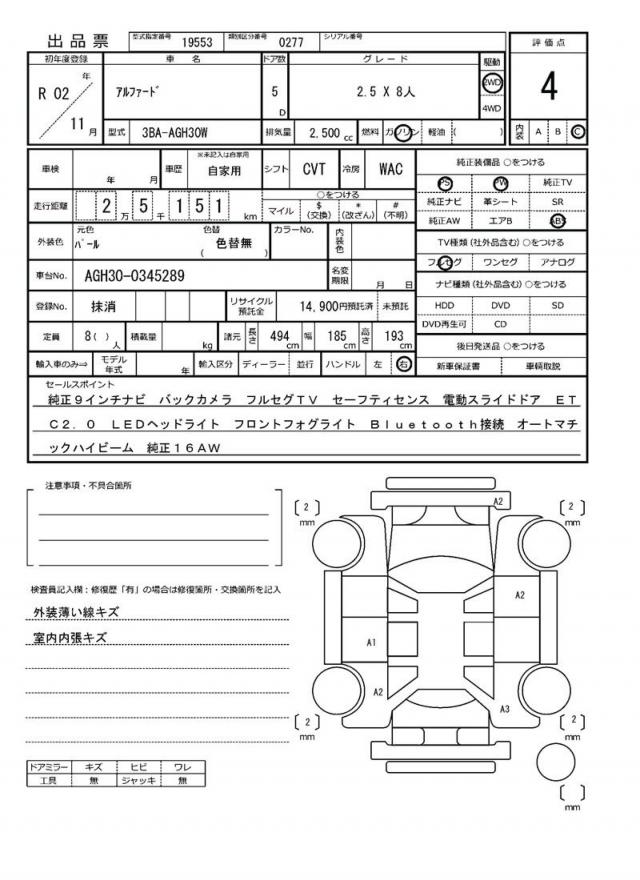 出品票 型式指定番号 19553 類別区分番号 0277 シリアル番号
初年度登録 車名 ドア数 グレード 駆動 評価点
R 02 年 11 月 アルファード 5 D 2.5 X 8人 2WD 4WD 4
型式 3BA-AGH30W 排気量 2,500 cc 燃料 ガソリン 軽油 ( ) 内装 A B C
車検 年 月 車歴 ※未記入は自家用 自家用 シフト CVT 冷房 WAC 純正装備品 ○をつける
PS PW 純正TV
走行距離 2 万 5 千 1 5 1 km ○をつける マイル $ (交換) * (改ざん) # (不明) 純正ナビ 革シート SR
純正AW エアB ABS
外装色 元色 パール 色替 ( 色替無 ) カラーNo. 内装色 TV種類 (社外品含む) ○をつける
フルセグ ワンセグ アナログ
車台No. AGH30-0345289 名変期限 月 日 ナビ種類 (社外品含む) ○をつける
登録No. 抹消 リサイクル預託金 14,900円預託済 未預託 HDD DVD SD
DVD再生可 CD
定員 8( ) 人 積載量 kg 諸元 長さ 494 cm 幅 185 cm 高さ 193 cm 後日発送品 ○をつける
輸入車のみ⇒ モデル年式 年 輸入区分 ディーラー 並行 ハンドル 左 右 新車保証書 車輌取説
セールスポイント
純正9インチナビ バックカメラ フルセグTV セーフティセンス 電動スライドドア ET
C2.0 LEDヘッドライト フロントフォグライト Bluetooth接続 オートマチ
ックハイビーム 純正16AW
注意事項・不具合箇所
検査員記入欄：修復歴「有」の場合は修復箇所・交換箇所を記入
外装薄い線キズ
室内内張キズ
ドアミラー キズ ヒビ ワレ
工具 無 ジャッキ 無
[ 2 ] mm A2 [ 2 ] mm
A2
A1
A2 A3
[ 2 ] mm [ 2 ] mm
[ ] mm